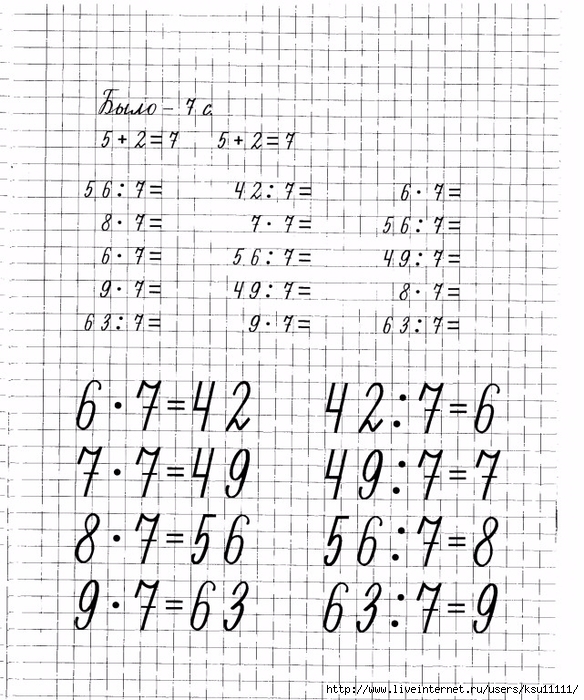 Было – 7 с.
5 + 2 = 7 5 + 2 = 7
56 : 7 = 42 : 7 = 6 · 7 =
8 · 7 = 7 · 7 = 56 : 7 =
6 · 7 = 56 : 7 = 49 : 7 =
9 · 7 = 49 : 7 = 8 · 7 =
63 : 7 = 9 · 7 = 63 : 7 =
6 · 7 = 42 42 : 7 = 6
7 · 7 = 49 49 : 7 = 7
8 · 7 = 56 56 : 7 = 8
9 · 7 = 63 63 : 7 = 9
http://www.liveinternet.ru/users/ksu11111/